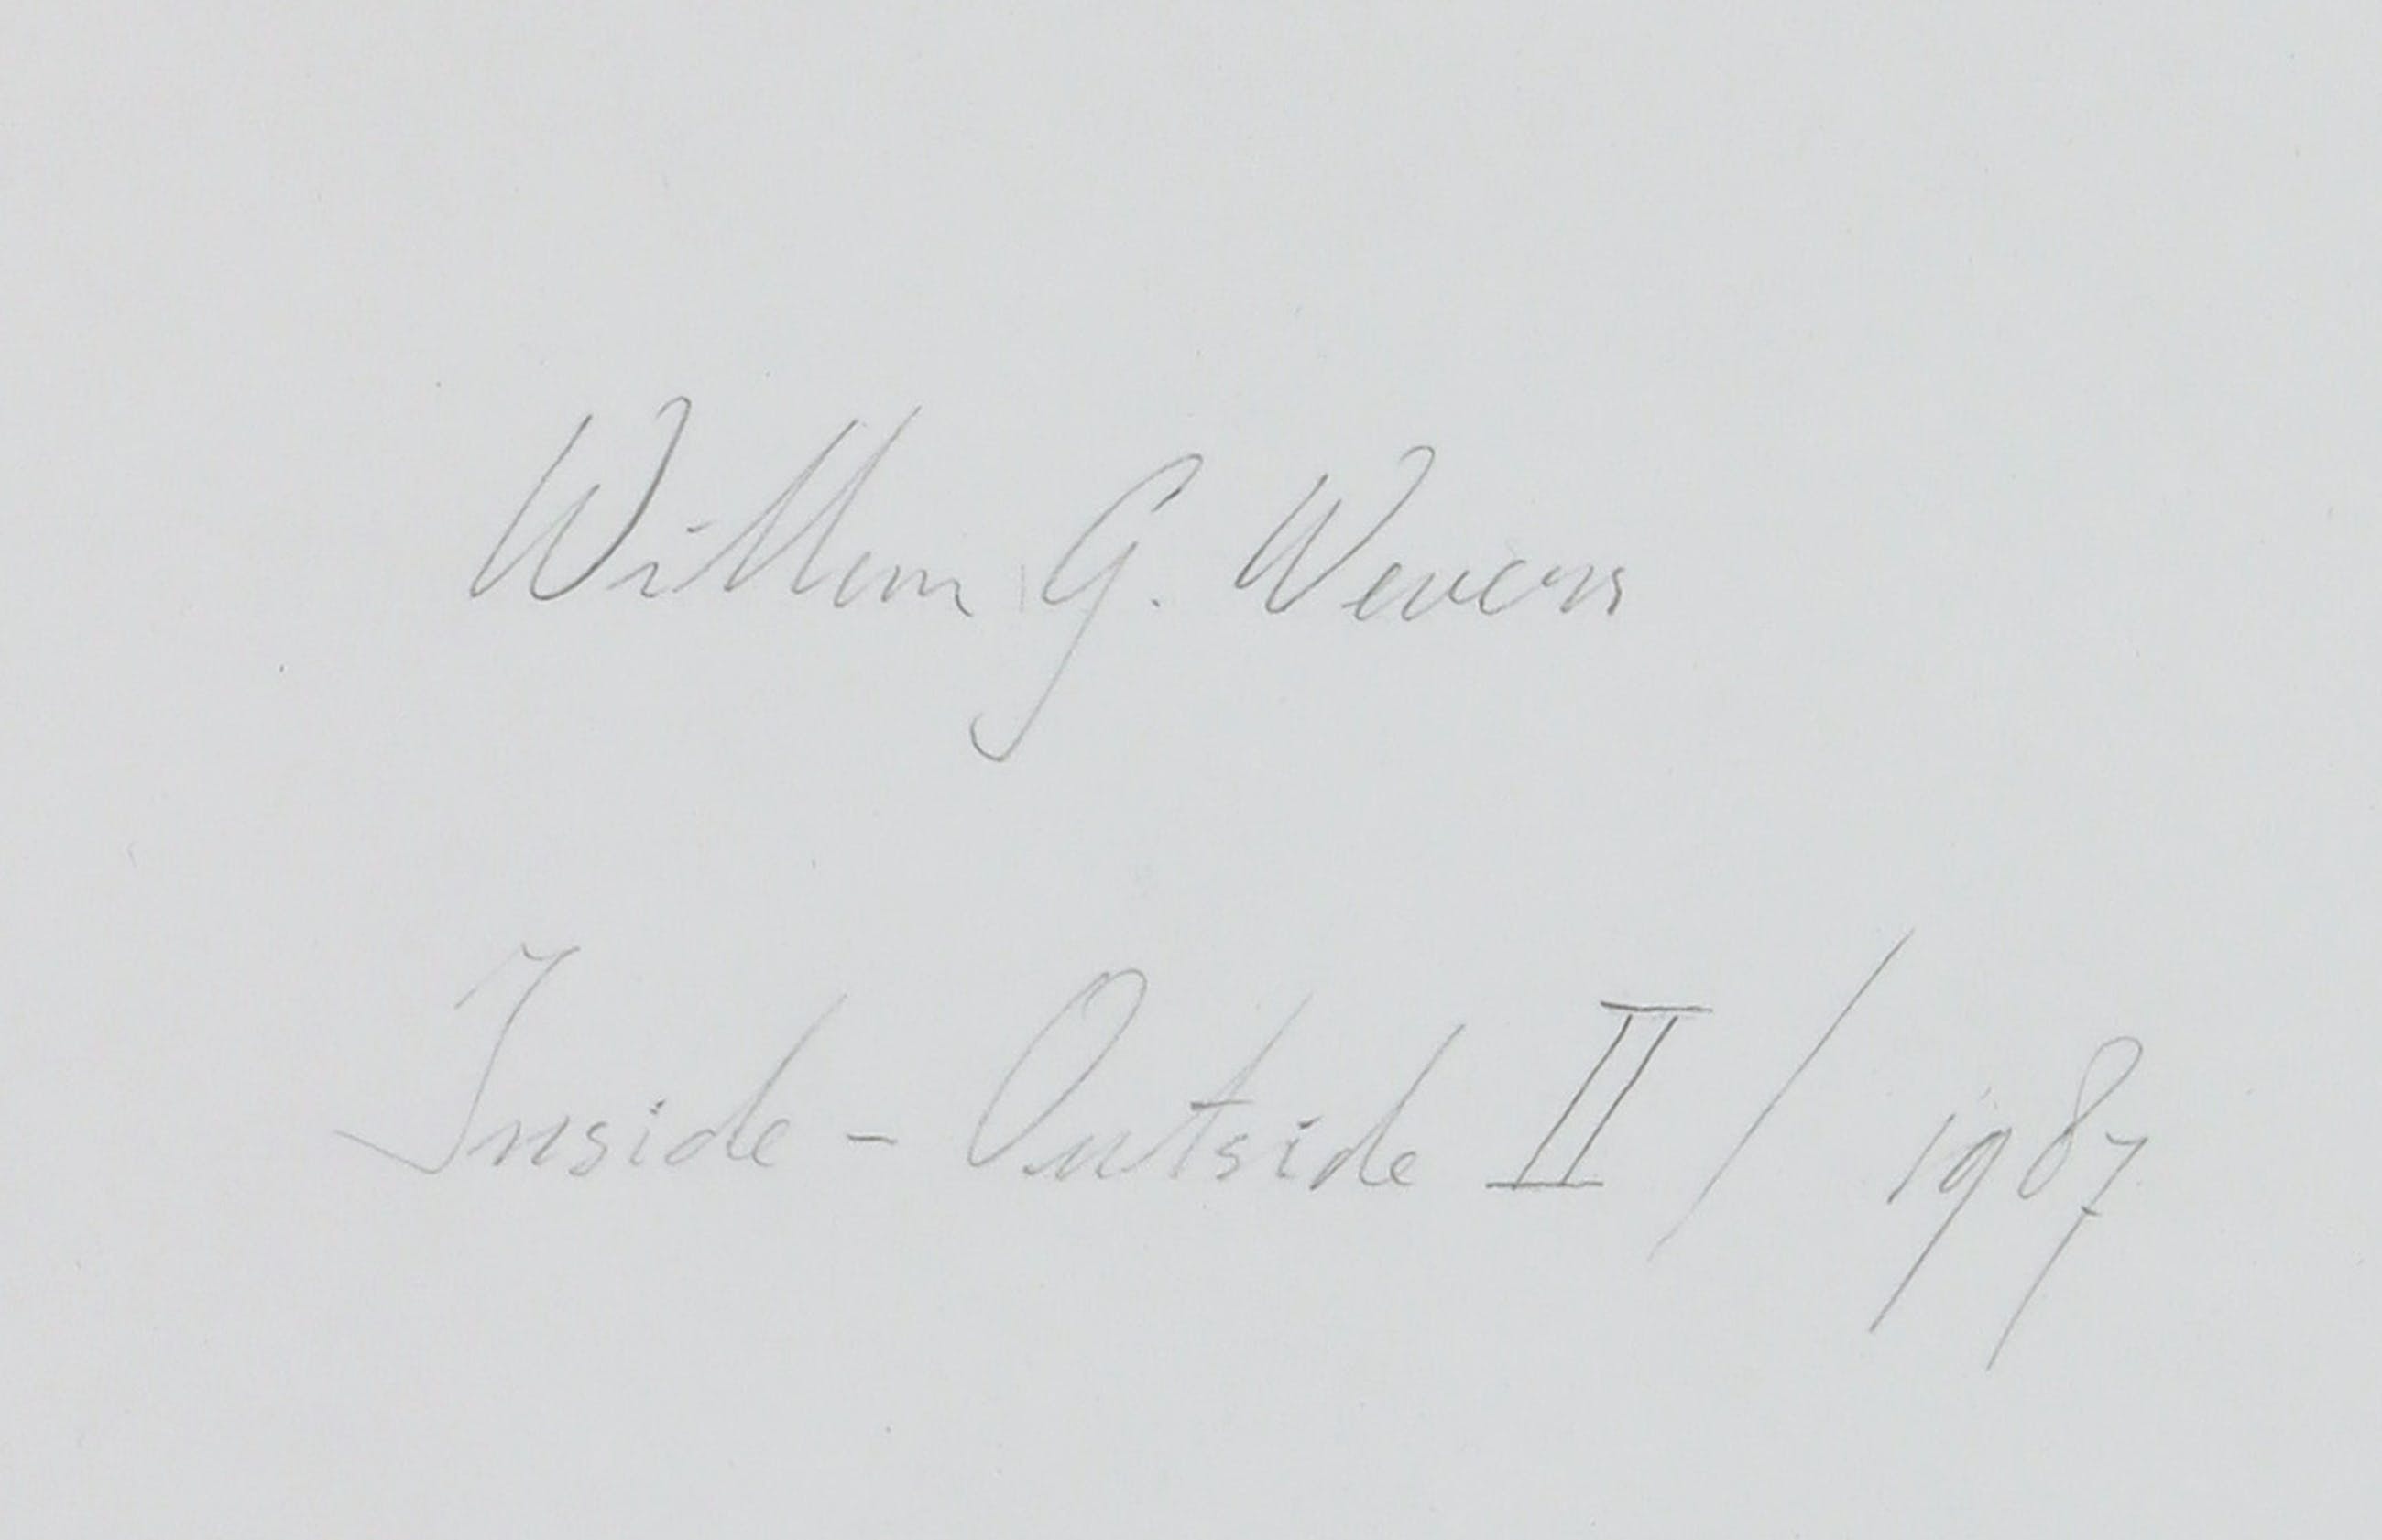 Willem G. Wevers
Inside - Outside II / 1987